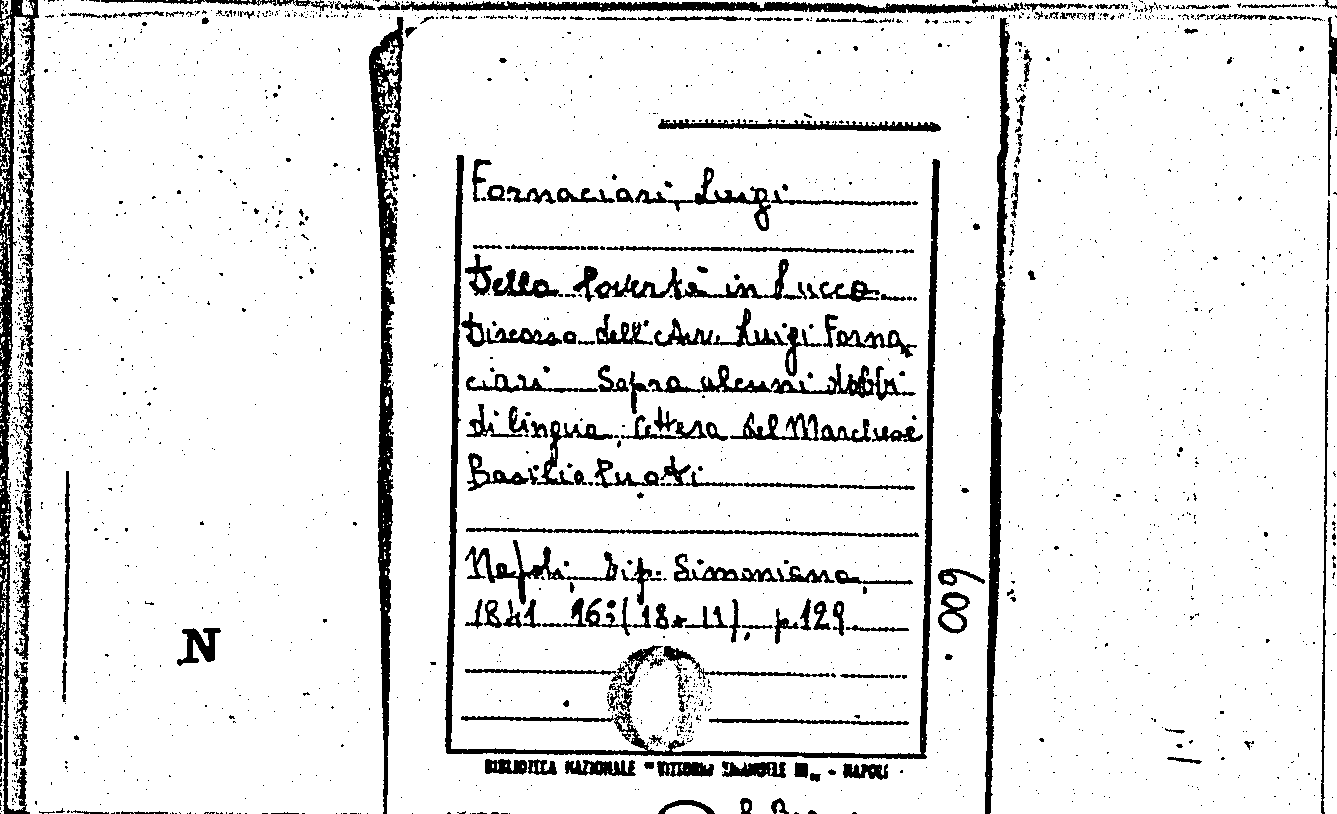 Fornaciari, Luigi
Della Povertà in Lucca
Discorso dell'Avv. Luigi Forna,
ciari Sopra alcuni dobbi
di lingua, lettera del Marchese
Basilio Puoti
Napoli, Tip. Simoniana,
1841 16:(18x11), p.129
600
N
BIBLIOTECA NAZIONALE "VITTORIO EMANUELE III" - NAPOLI